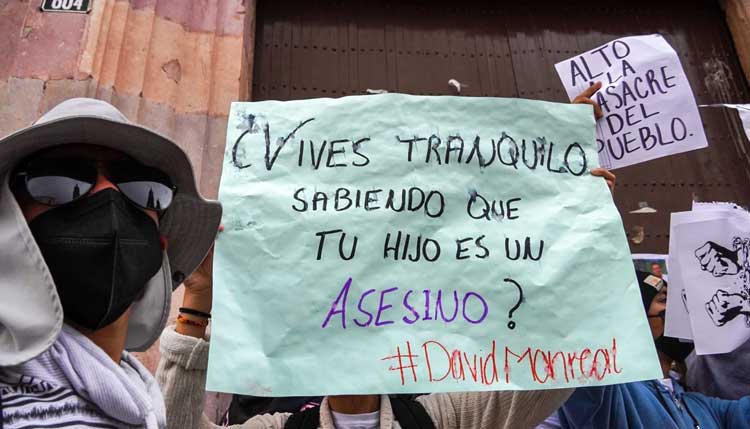 604
¿VIVES TRANQUILO
SABIENDO QUE
TU HIJO ES UN
ASESINO?
#DavidMonreal
ALTO
LA
MASACRE
DEL
PUEBLO.